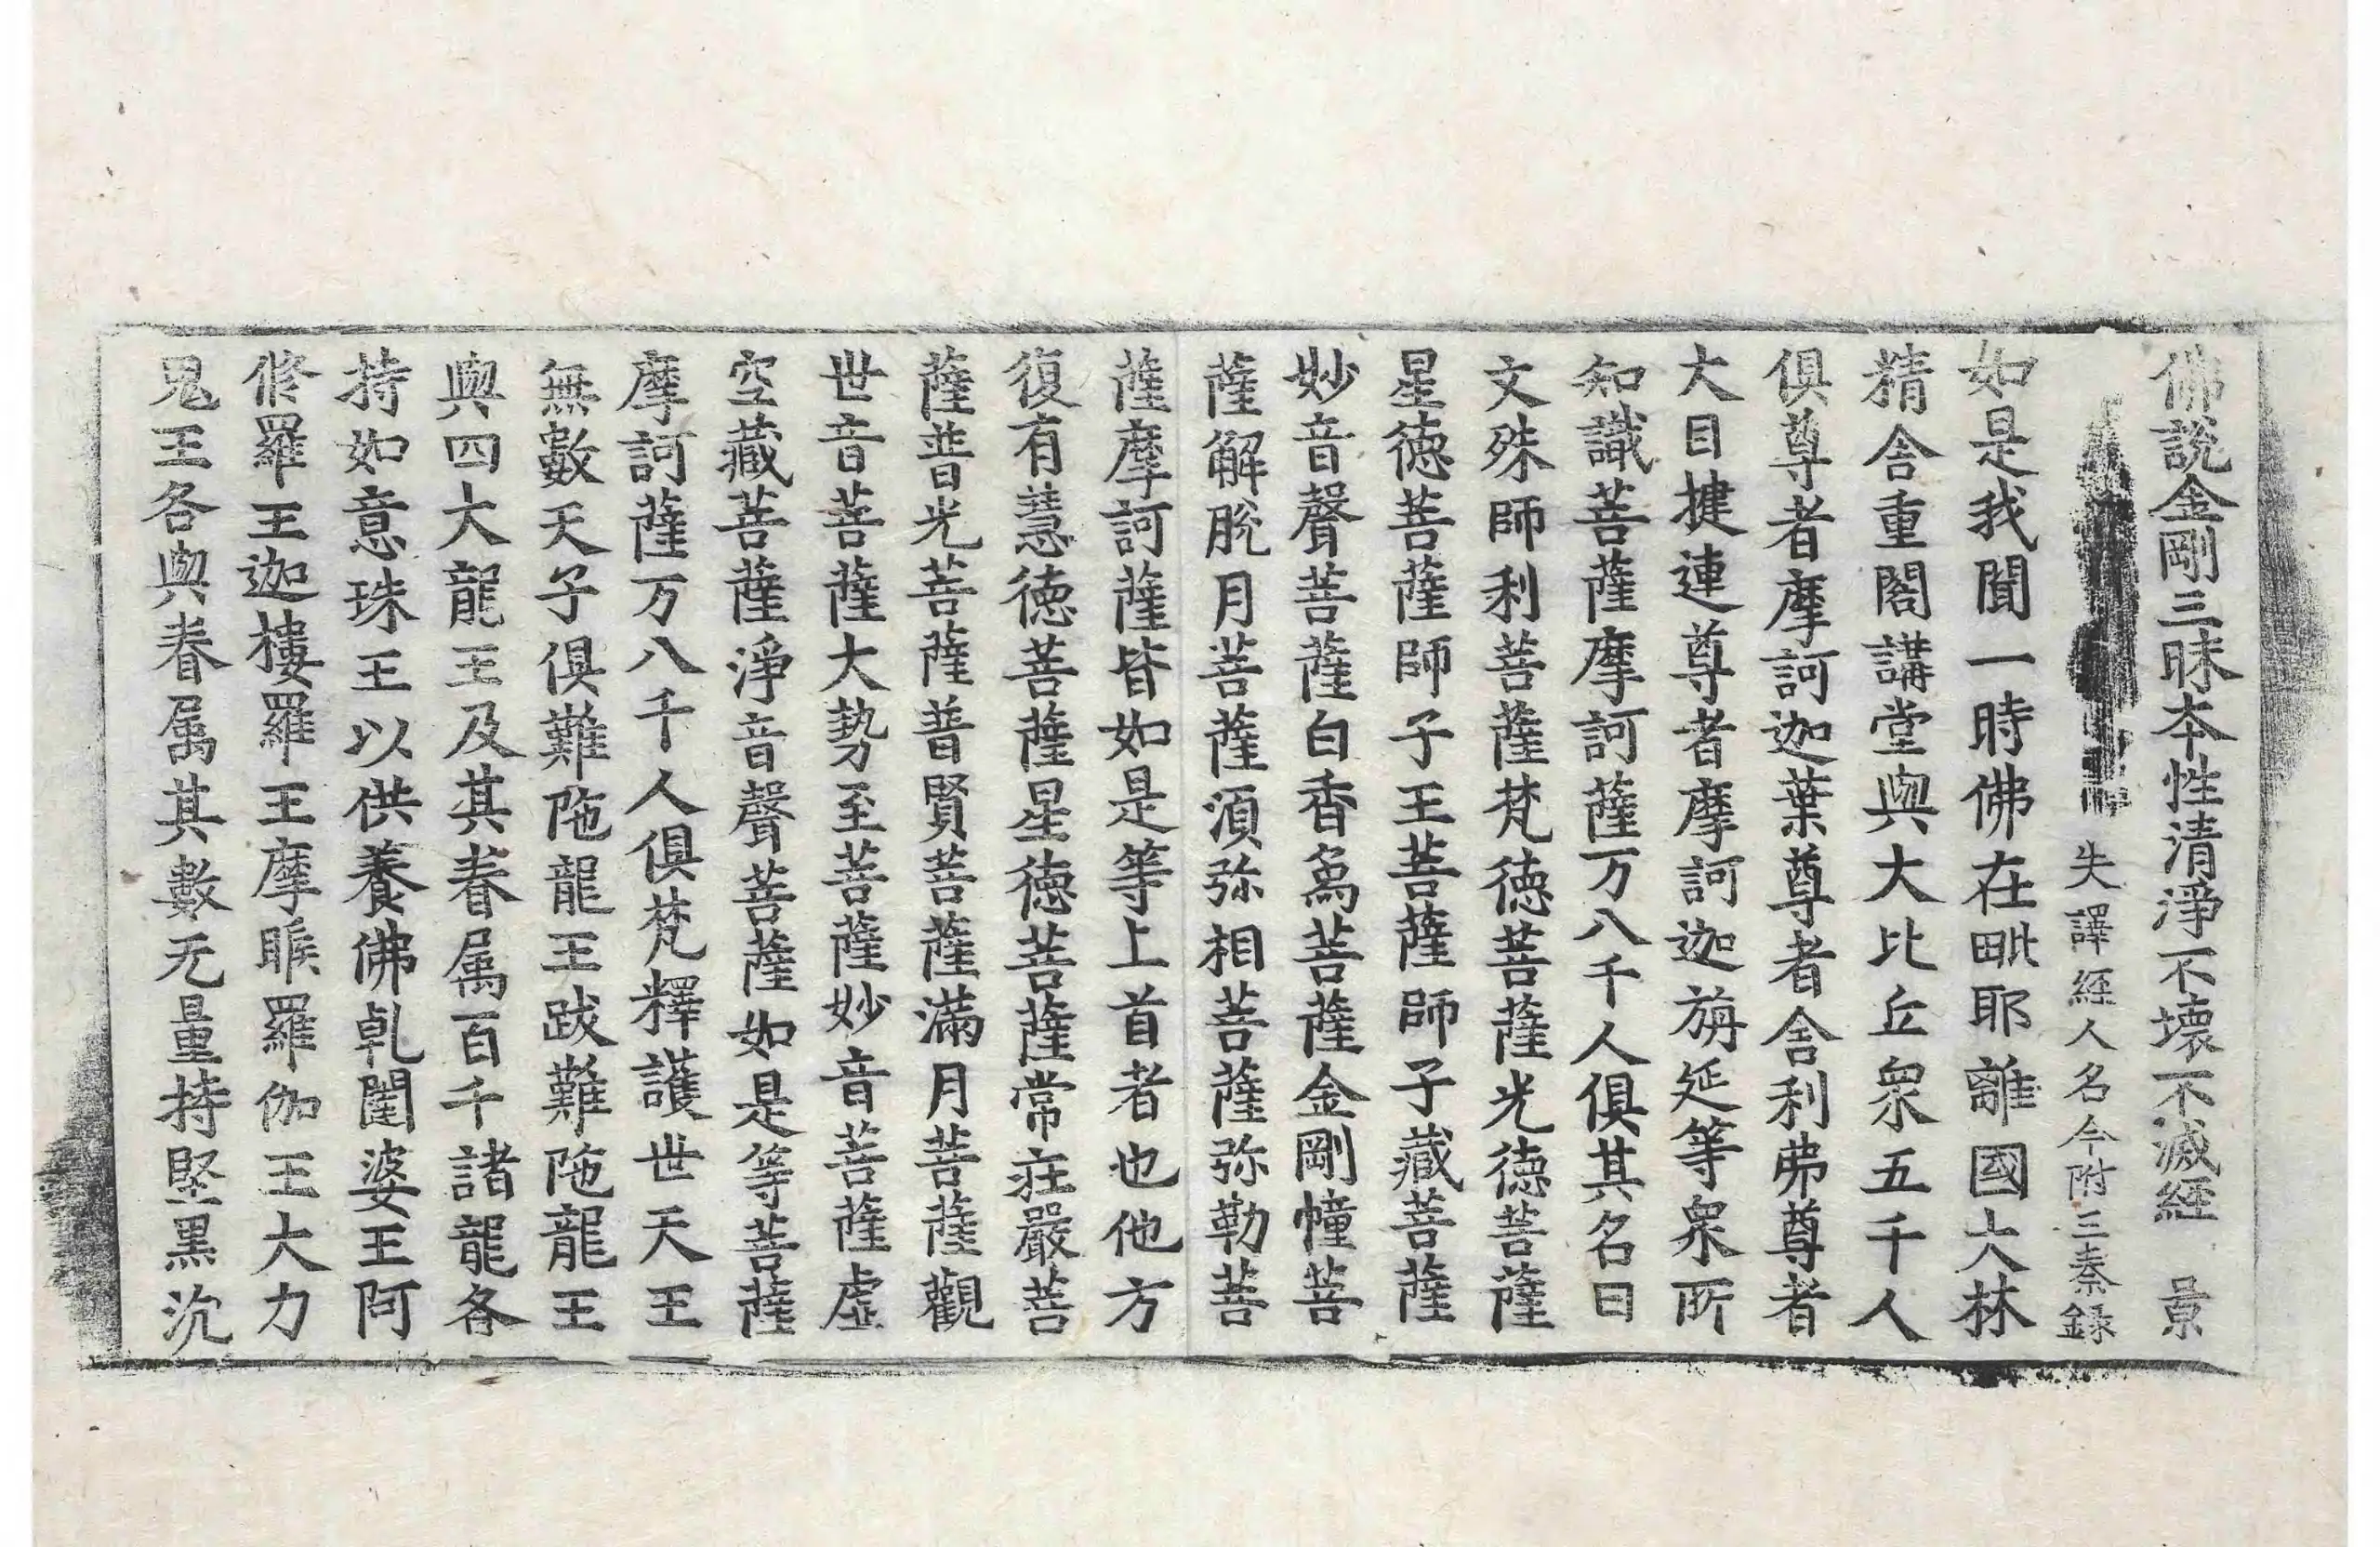 佛說金剛三昧本性清淨不壞不滅經 景
失譯經人名今附三秦錄
如是我聞一時佛在毗耶離國大林
精舍重閣講堂與大比丘衆五千人
俱尊者摩訶迦葉尊者舍利弗尊者
大目揵連尊者摩訶迦旃延等衆所
知識菩薩摩訶薩万八千人俱其名曰
文殊師利菩薩梵德菩薩光德菩薩
星德菩薩師子王菩薩師子藏菩薩
妙音聲菩薩白香象菩薩金剛幢菩
薩解脫月菩薩湏弥相菩薩弥勒菩
薩摩訶薩皆如是等上首者也他方
復有慧德菩薩星德菩薩常莊嚴菩
薩普光菩薩普賢菩薩滿月菩薩觀
世音菩薩大勢至菩薩妙音菩薩虛
空藏菩薩淨音聲菩薩如是等菩薩
摩訶薩万八千人俱梵釋護世天王
無數天子俱難陁龍王跋難陁龍王
與四大龍王及其眷属百千諸龍各
持如意珠王以供養佛乹闥婆王阿
修羅王迦樓羅王摩睺羅伽王大力
鬼王各與眷属其數无量持堅黑沉